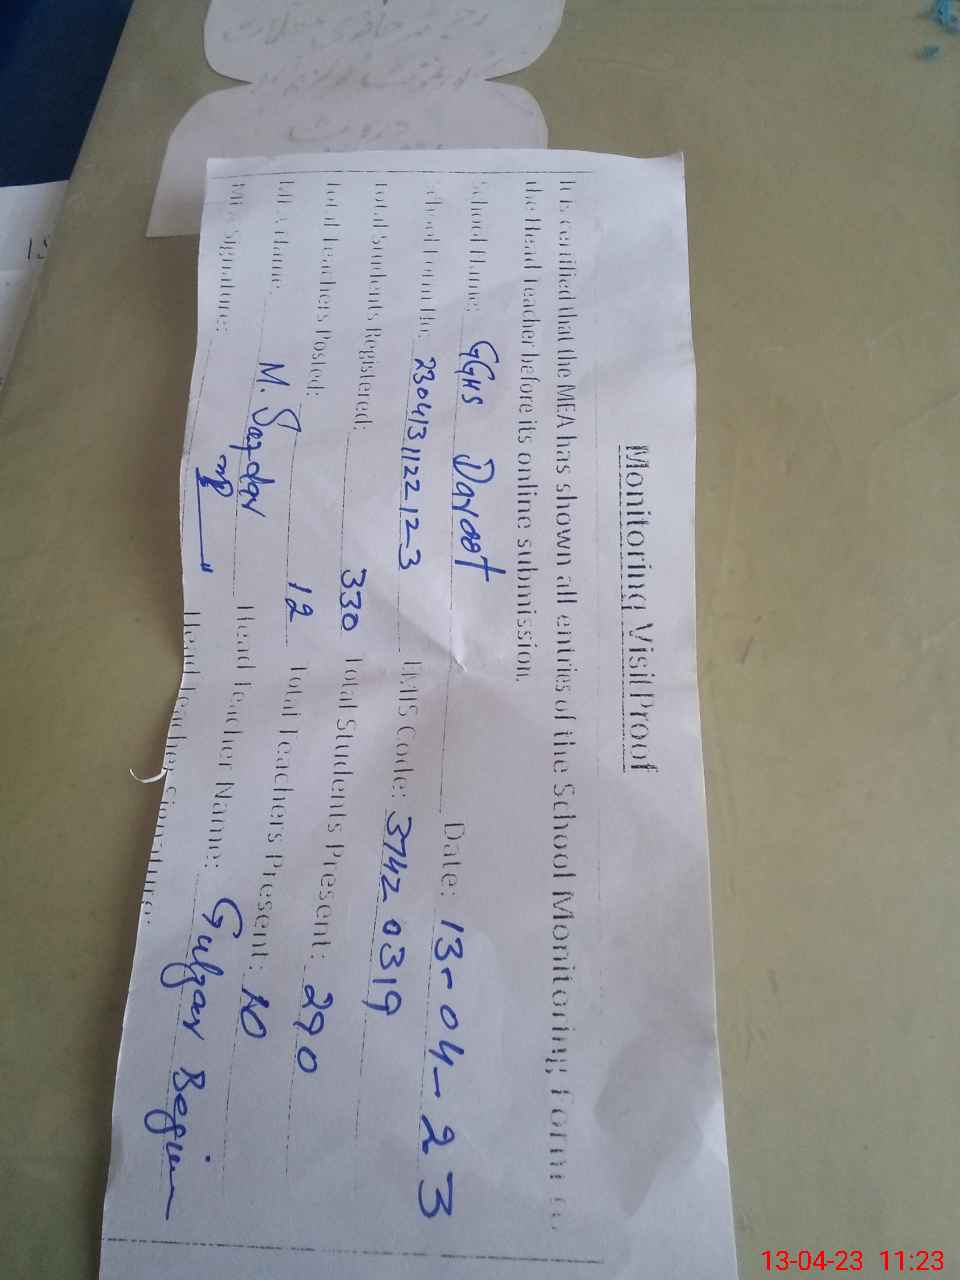 Monitoring Visit Proof
It is certified that the MEA has shown all entries of the School Monitoring Form to
the Head Teacher before its online submission.
School Name: GGHS Daroot Date: 13-04-23
School Form No: 230413112212-3 EMIS Code: 37420319
Total Students Registered: 330 Total Students Present: 290
Total Teachers Posted: 12 Total Teachers Present: 10
MEA Name: M. Safdar Head Teacher Name: Gulzar Begum
MEA Signature: Head Teacher Signature:
13-04-23 11:23